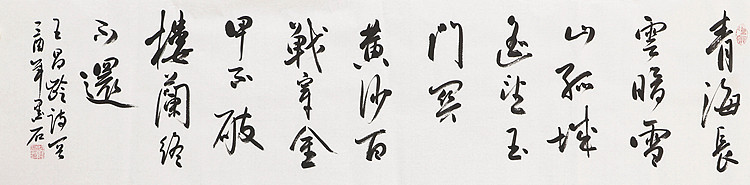 青海長
雲暗雪
山孤城
遙望玉
門關
黃沙百
戰穿金
甲不破
樓蘭終
不還
王昌齡詩
年墨石